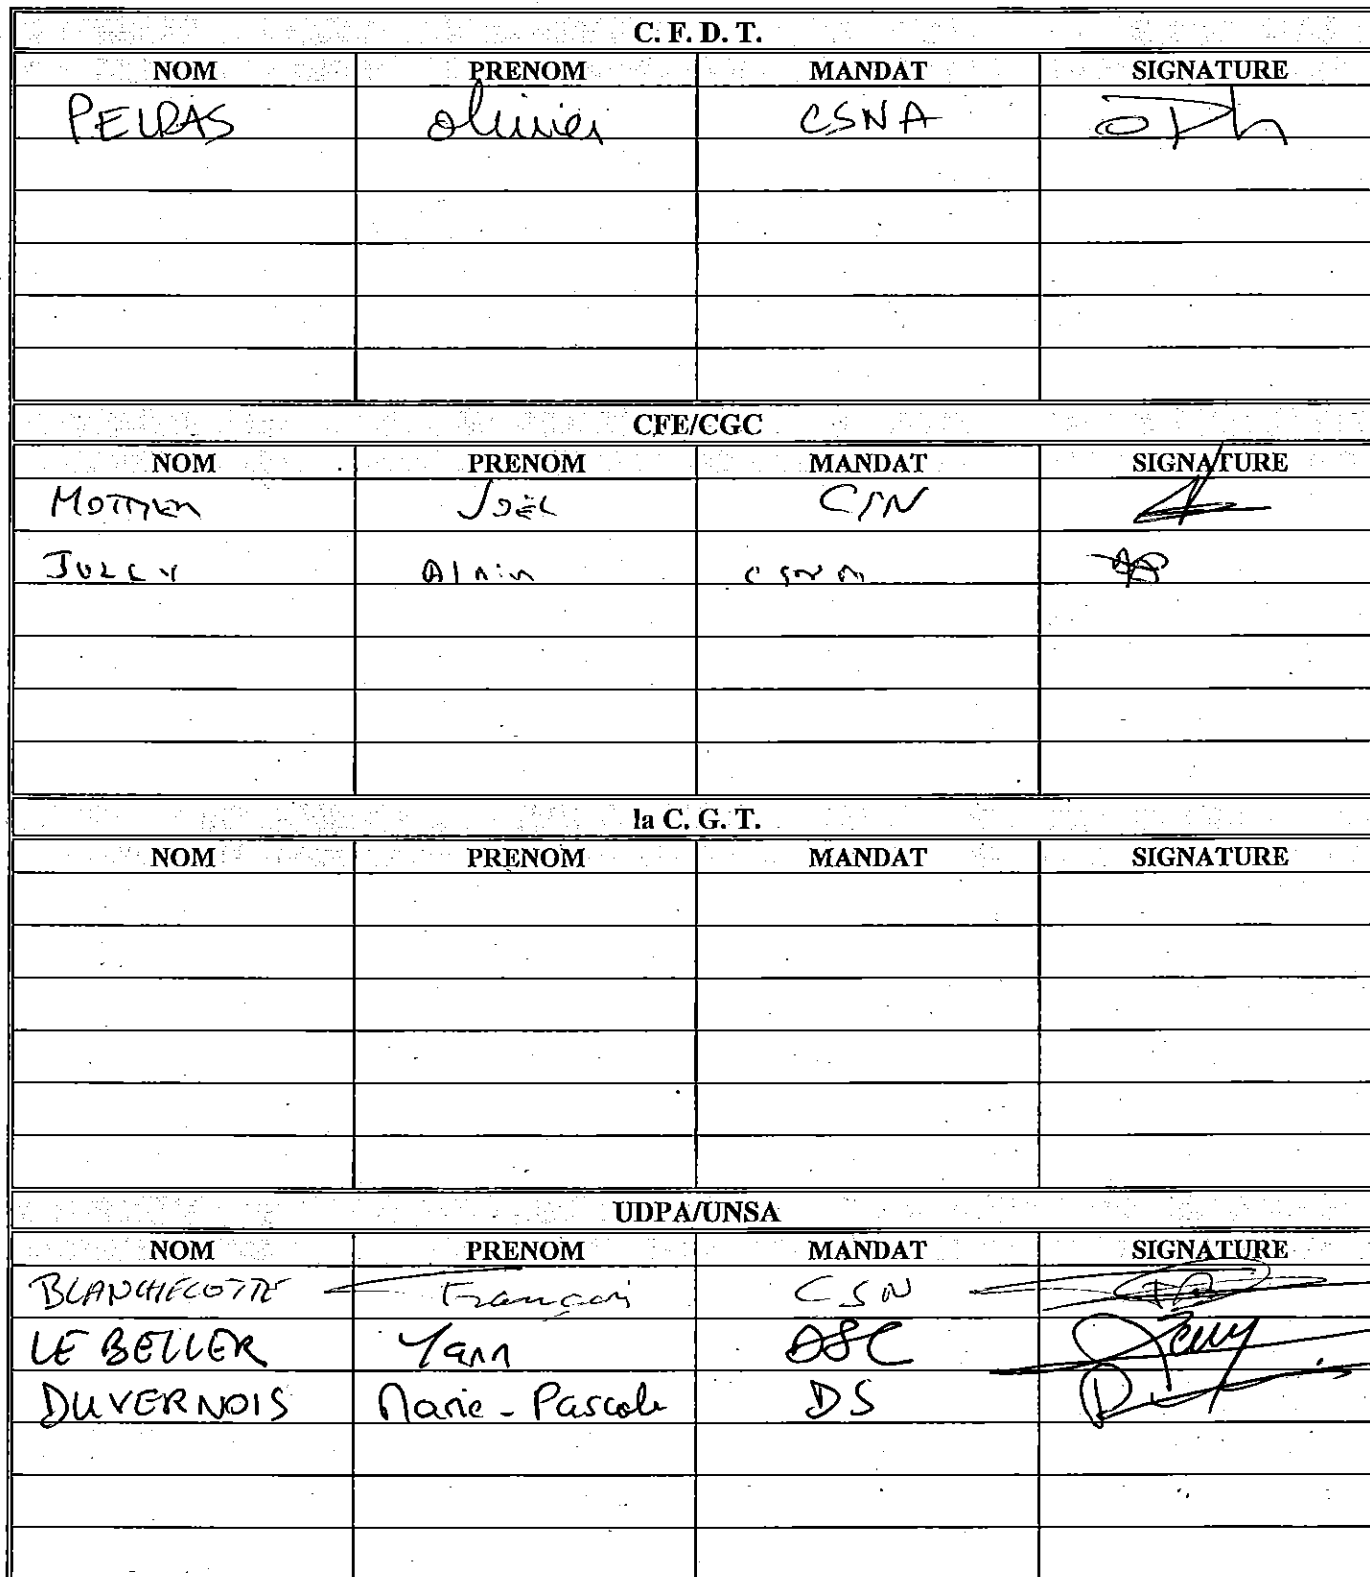 C. F. D. T.
NOM PRENOM MANDAT SIGNATURE
PELRAS Olivier CSNA
CFE/CGC
NOM PRENOM MANDAT SIGNATURE
Joël CSN
JULLY Alain CSNA
la C. G. T.
NOM PRENOM MANDAT SIGNATURE
UDPA/UNSA
NOM PRENOM MANDAT SIGNATURE
BLANCHECOTTE François CSN
LE BELLER Yann DSC
DUVERNOIS Marie-Pascale DS